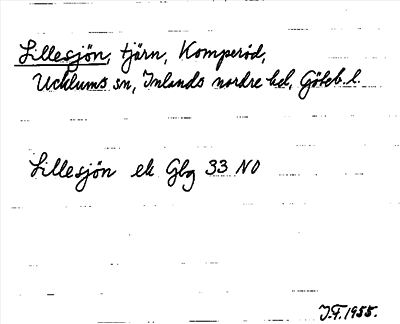 Lillesjön, tjärn, Komperöd,
Ucklums sn, Inlands nordre hd, Göteb. l.
Lillesjön ek Gbg 33 NO
J.F. 1955.